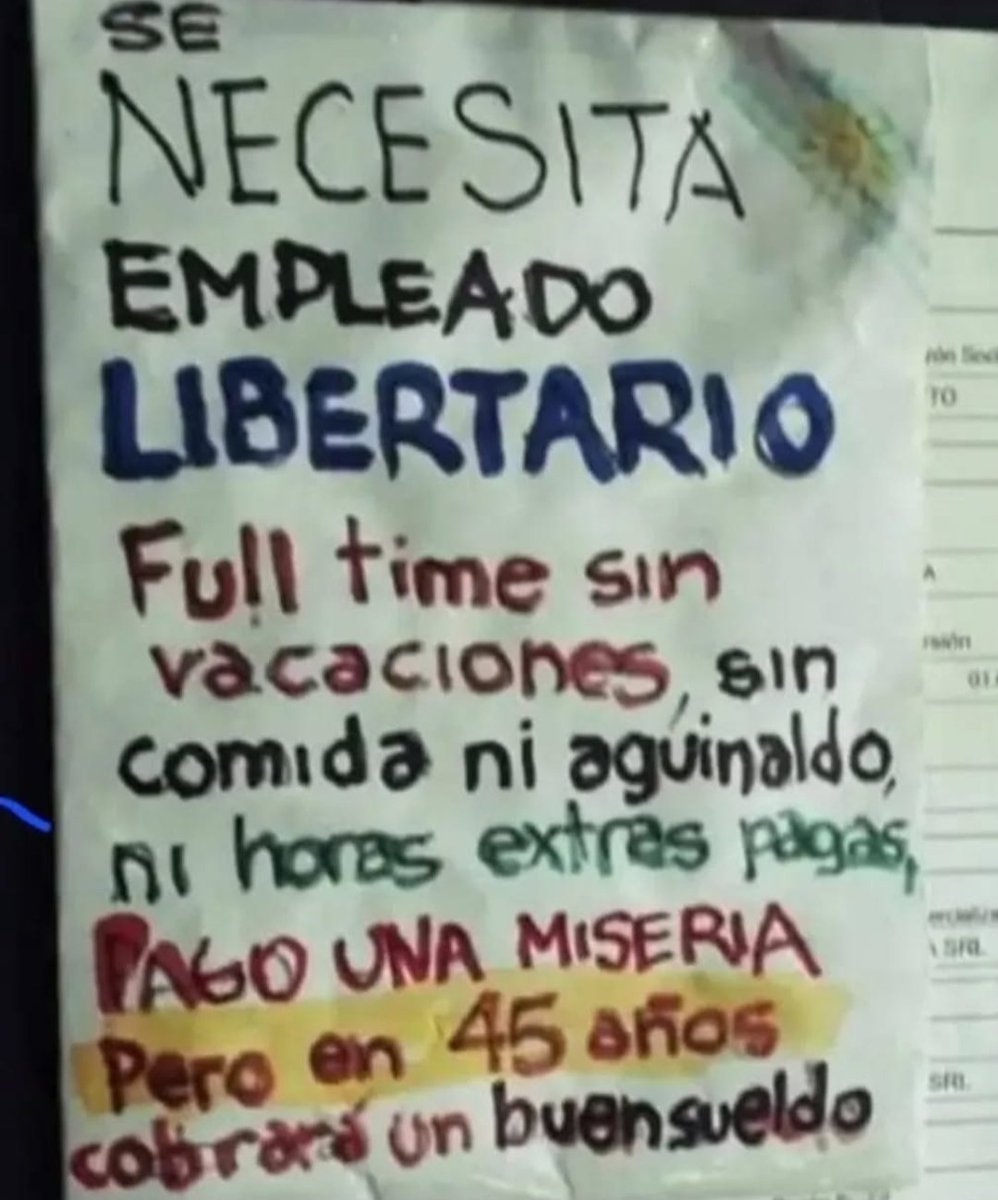 SE
NECESITA
EMPLEADO
LIBERTARIO
Full time sin
vacaciones, sin
comida ni aguinaldo,
ni horas extras pagas,
PAGO UNA MISERIA
Pero en 45 años
cobrará un buen sueldo
TO
A
01
SRL
SRL